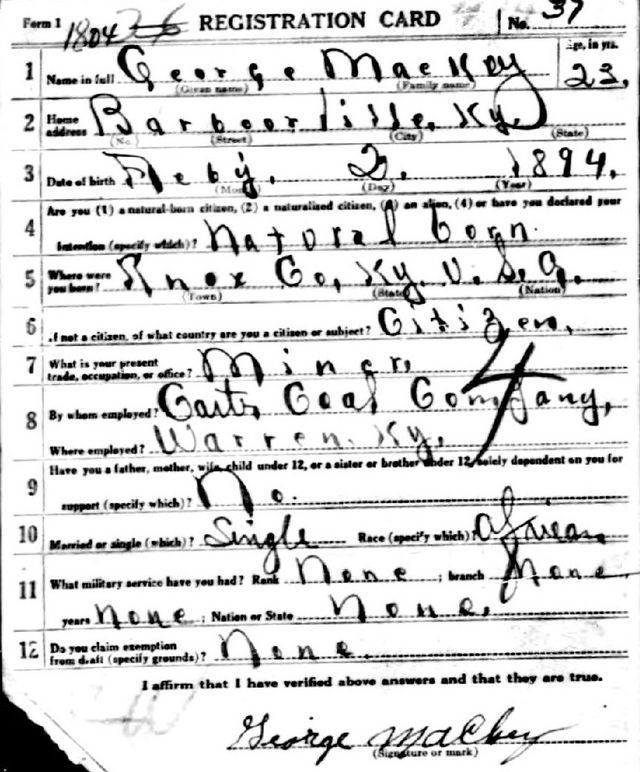 Form 1 1804 REGISTRATION CARD No. 37
1 Name in full George Mackey Age, in yrs. 23.
(Given name) (Family name)
2 Home address Barboorville, Ky.
(No.) (Street) (City) (State)
3 Date of birth Feby. 2. 1894.
(Month) (Day) (Year)
4 Are you (1) a natural-born citizen, (2) a naturalized citizen, (3) an alien, (4) or have you declared your
intention (specify which)? Natoral born.
5 Where were you born? Knox Co, Ky. U. S. A.
(Town) (State) (Nation)
6 If not a citizen, of what country are you a citizen or subject? Citizen,
7 What is your present trade, occupation, or office? Miner,
4
8 By whom employed? Coal Company,
Where employed? Warren. Ky,
9 Have you a father, mother, wife, child under 12, or a sister or brother under 12, solely dependent on you for
support (specify which)? No.
10 Married or single (which)? Single Race (specify which)? African
11 What military service have you had? Rank None ; branch None
years None ; Nation or State None.
12 Do you claim exemption from draft (specify grounds)? None.
I affirm that I have verified above answers and that they are true.
George Mackey
(Signature or mark)